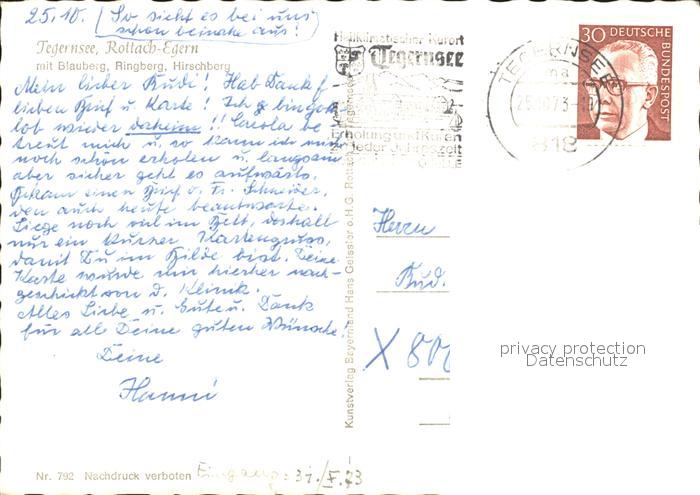 25.10. (So sieht es bei uns
schon beinahe aus!
Tegernsee, Rottach-Egern
mit Blauberg, Ringberg, Hirschberg
Mein lieber Rudi! Hab Dank f.
lieben Brief u. Karte! Ich bin gott-
lob wieder daheim!! be
treut mich u. so kann ich mich
noch schön erholen u. langsam
aber sicher geht es aufwärts.
Bekam einen Brief v. Fr. Schneider,
den auch heute beantworte.
Liege noch viel im Bett, deshalb
nur ein kurzer Kartengruss,
damit Du im Bilde bist. Deine
Karte wurde mir hierher nach-
geschickt von d. Klinik.
Alles Liebe u. Gute u. Dank
für all Deine guten Wünsche.
Deine
Hanni
Nr. 792 Nachdruck verboten Eingang: 31./X.73
Kunstverlag Bayernland Hans Geissler o.H.G. Rottach
Heilklimatischer Kurort
Tegernsee
Erholung und Kuren
zu jeder Jahreszeit
TEGERNSEE
25.10.73
818
30 DEUTSCHE
BUNDESPOST
Herrn
Rud.
X 80
privacy protection
Datenschutz